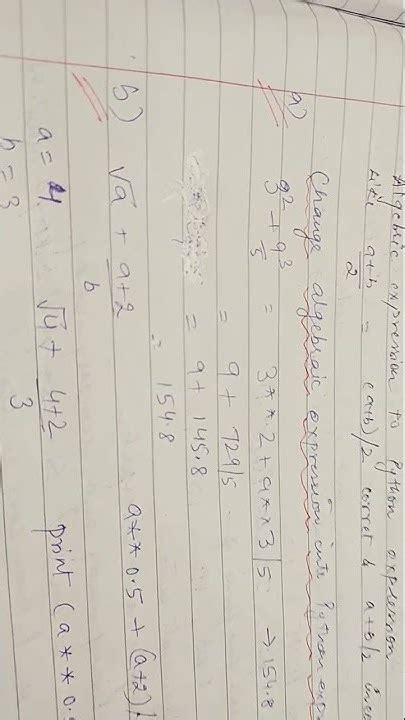 Algebric expression to Python expression
a+b/2 = (a+b)/2 correct & a+b/2
Change algebraic expression into Python
a) 3² + 9³/5 = 3**2+9**3/5 → 154.8
= 9 + 729/5
= 9 + 145.8
= 154.8
b) √a + a+2/b a**0.5+(a+2)/
a = 4 √4 + 4+2/3 print (a**0.
b = 3